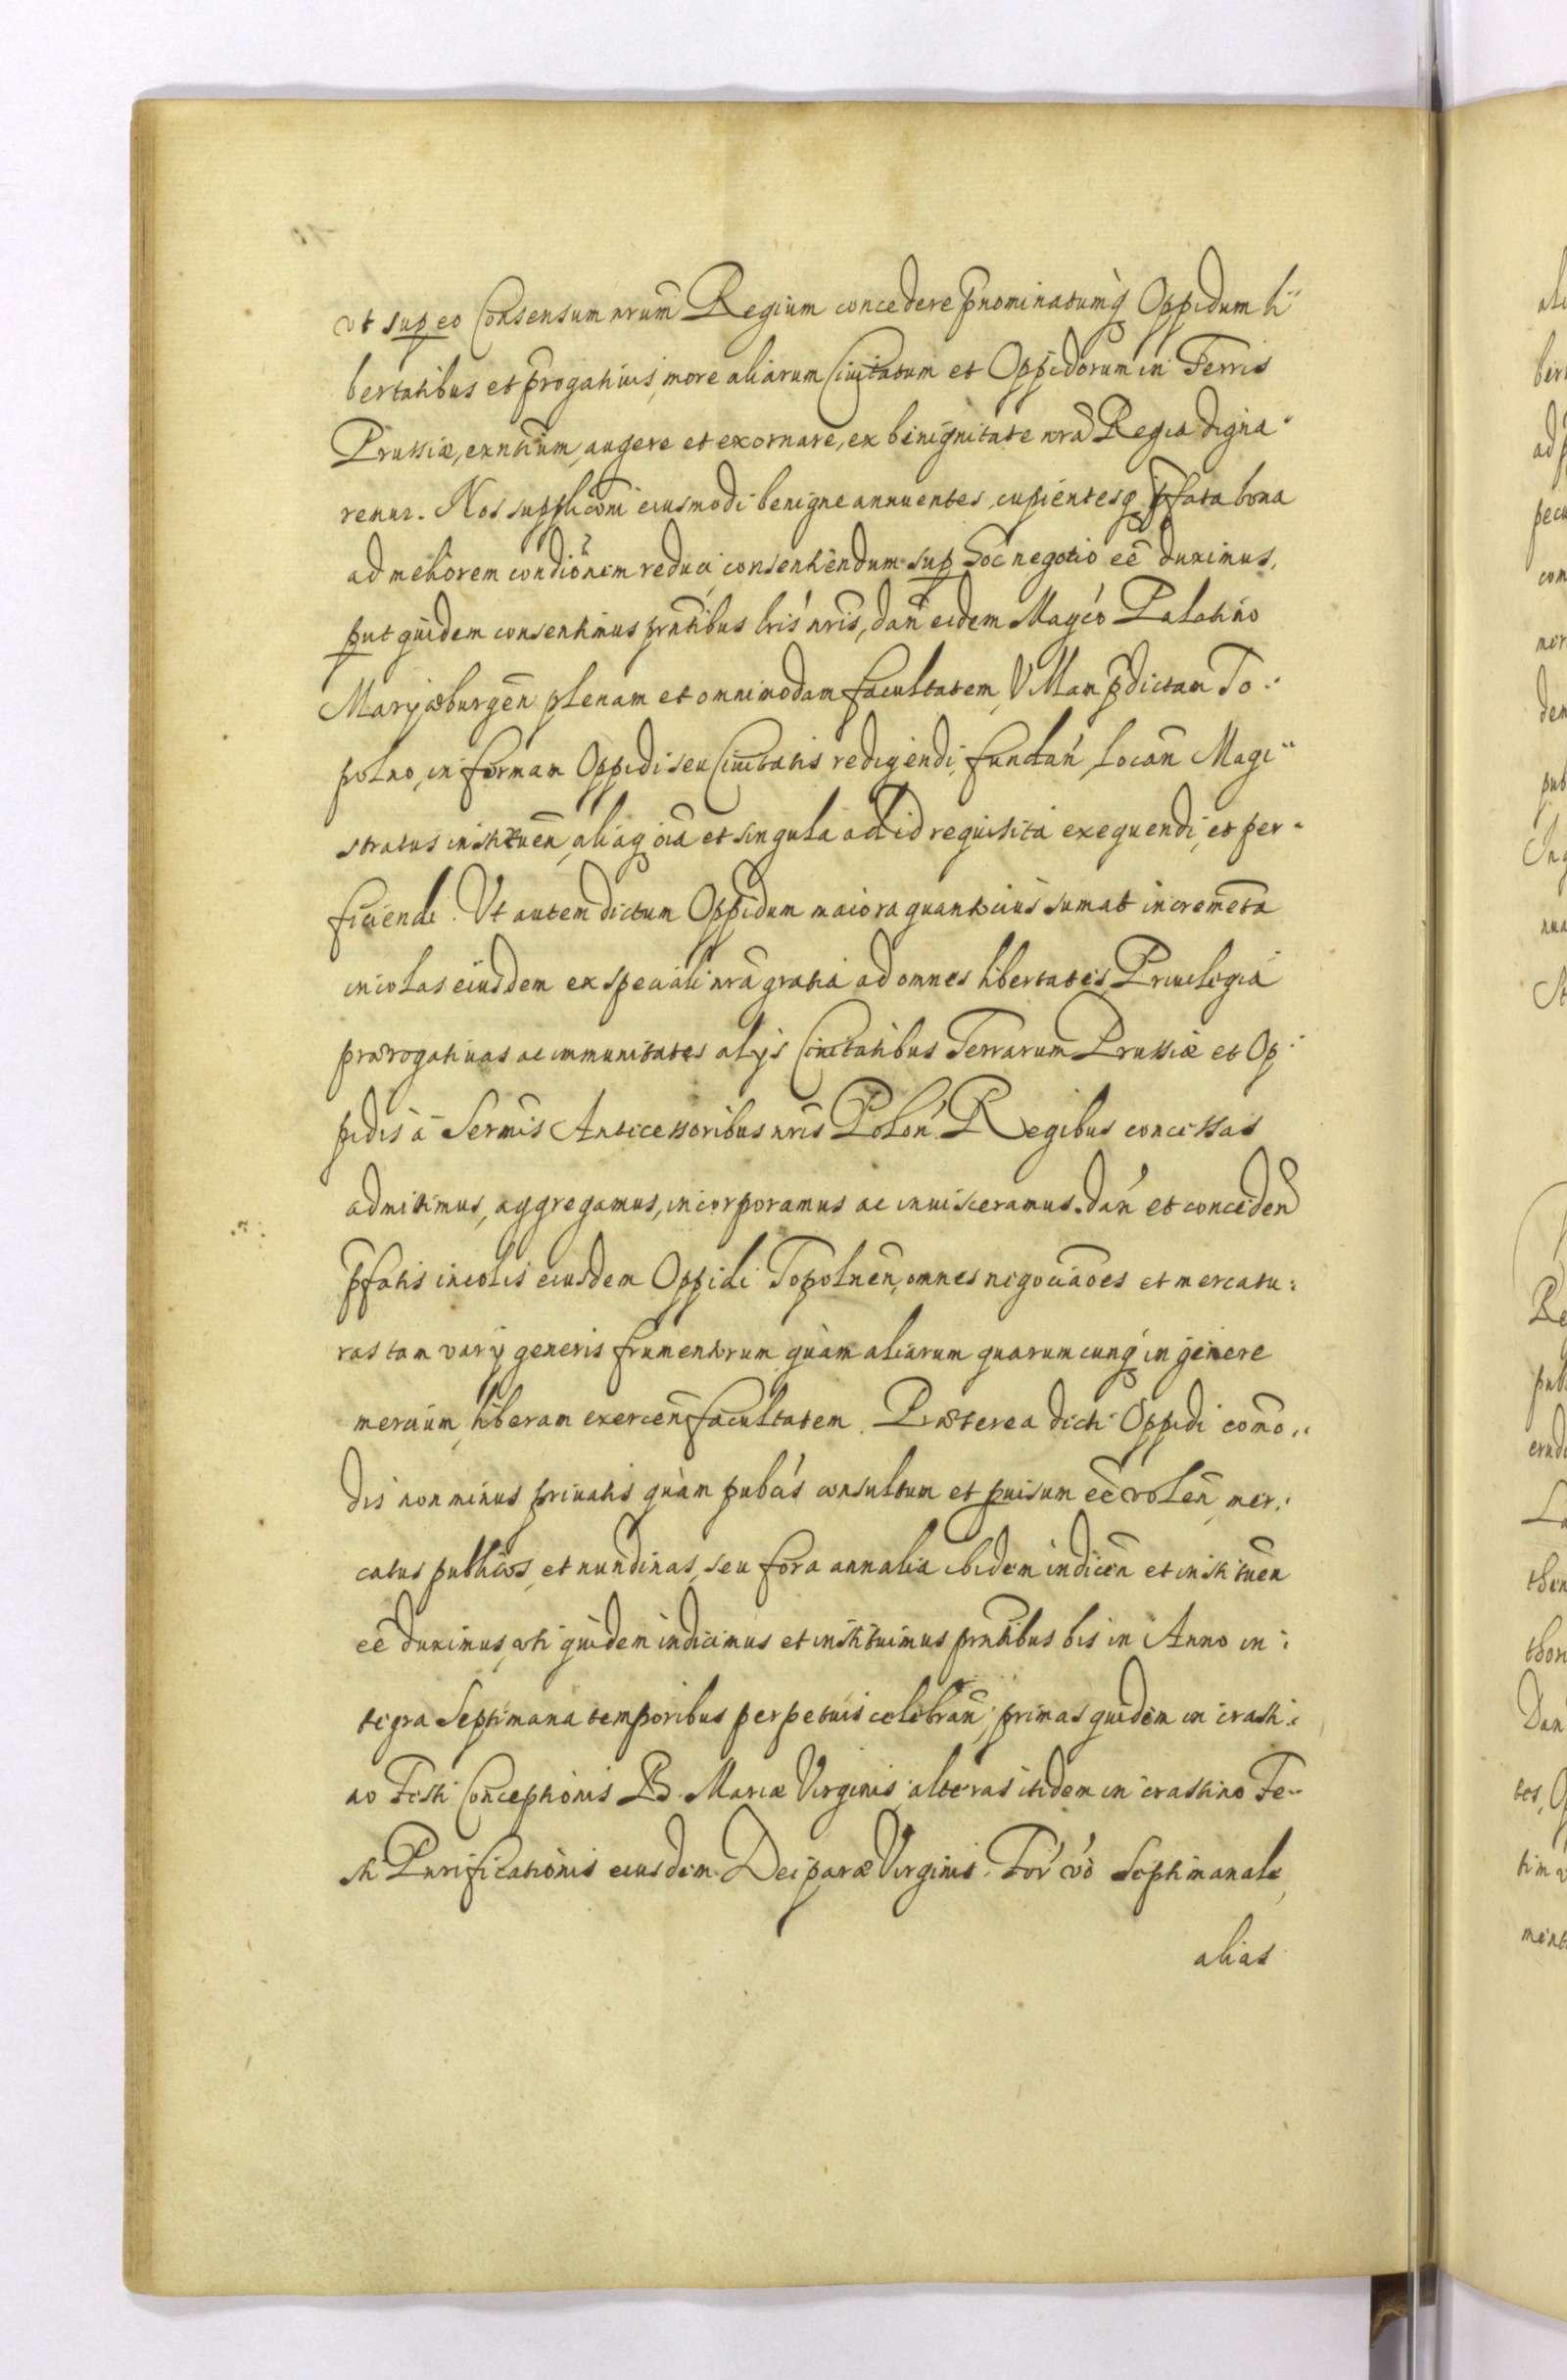 vt sup eo Consensum nrum̄ Regium concedere p̄nominatumq́ Oppidum li¨
bertatibus et p̄rogatiuis, more aliarum Ciuitatum et Oppidorum in Terris
Prussiæ, exn̄tium, augere et exornare, ex benignitate nrā Regia digna¨
remur. Nos supplic̄oni eiusmodi benigne annuentes, cupientesq́ p̄fata bona
ad meliorem condiōnem reduci, consentiendum sup hoc negotio eē duximus,
put quidem consentimus prn̄tibus lris nris̄, dan̄ eidem Magcó Palatino
Maryæburgen̄ plenam et omnimodam facultatem, Villam p̄dictam To¨
polno, in formam Oppidi seu Ciuitatis redigendi, fundań, Locan̄ Magi¨
stratus instituen̄, aliaq́ oīa et singula ad id requisita exequendi, et per¨
ficiendi. Vt autem dictum Oppidum maiora quantocius sumat incremēta
incolas eiusdem ex speciali nrā gratia ad omnes libertates, Priuilegia
prærogatiuas ac immunitates alijs Ciuitatibus Terrarum Prussiæ et Op¨
pidis à Serm̄is Antecessoribus nris̄ Poloń. Regibus concessas
admittimus, aggregamus, incorporamus ac inuisceramus. dań et conceden̄
p̄fatis incolis eiusdem Oppidi Topolnen̄, omnes negociāoes et mercatu:
ras tam varij generis frumentorum quàm aliarum quarumcunq́ in genere
mercium, liberam exercen̄ facultatem. Præterea dicti Oppidi com̄o¨
dis non minus priuatis quàm pubcís consultum et puisum eē volen̄, mer¨
catus publicos, et nundinas, seu fora annalia ibidem indicen̄ et instituen̄
eē duximus, vti quidem indicimus et instituimus prn̄tibus bis in Anno in:
tegra Septimana temporibus perpetuis celebran̄, primas quidem in crasti:
no Festi Conceptionis B. Mariæ Virginis, alteras itidem in crastino Fe¨
sti Purificationis eiusdem Deiparæ Virginis. For vó Septimanale,
alias